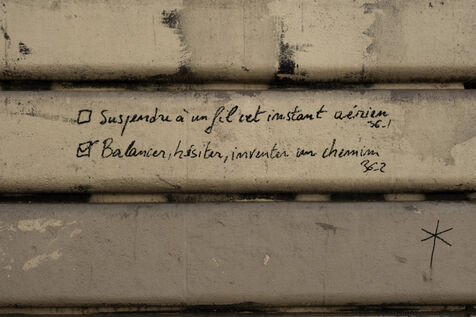 ☐ Suspendre à un fil cet instant aérien
36-1
☑ Balancer, hésiter, inventer un chemin
36-2